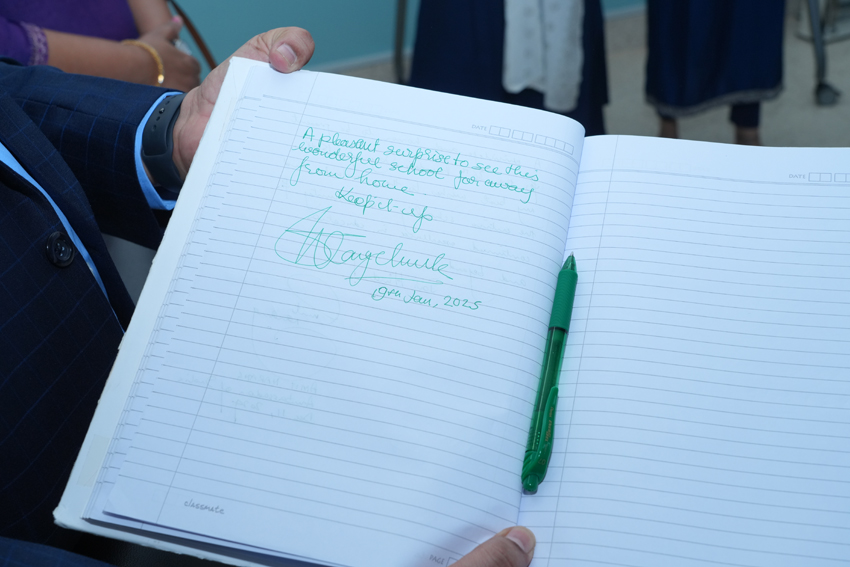 DATE
A pleasent surprise to see this
wonderful school far away
from home
Keep it up
19th Jan, 2025
classmate
PAGE
DATE